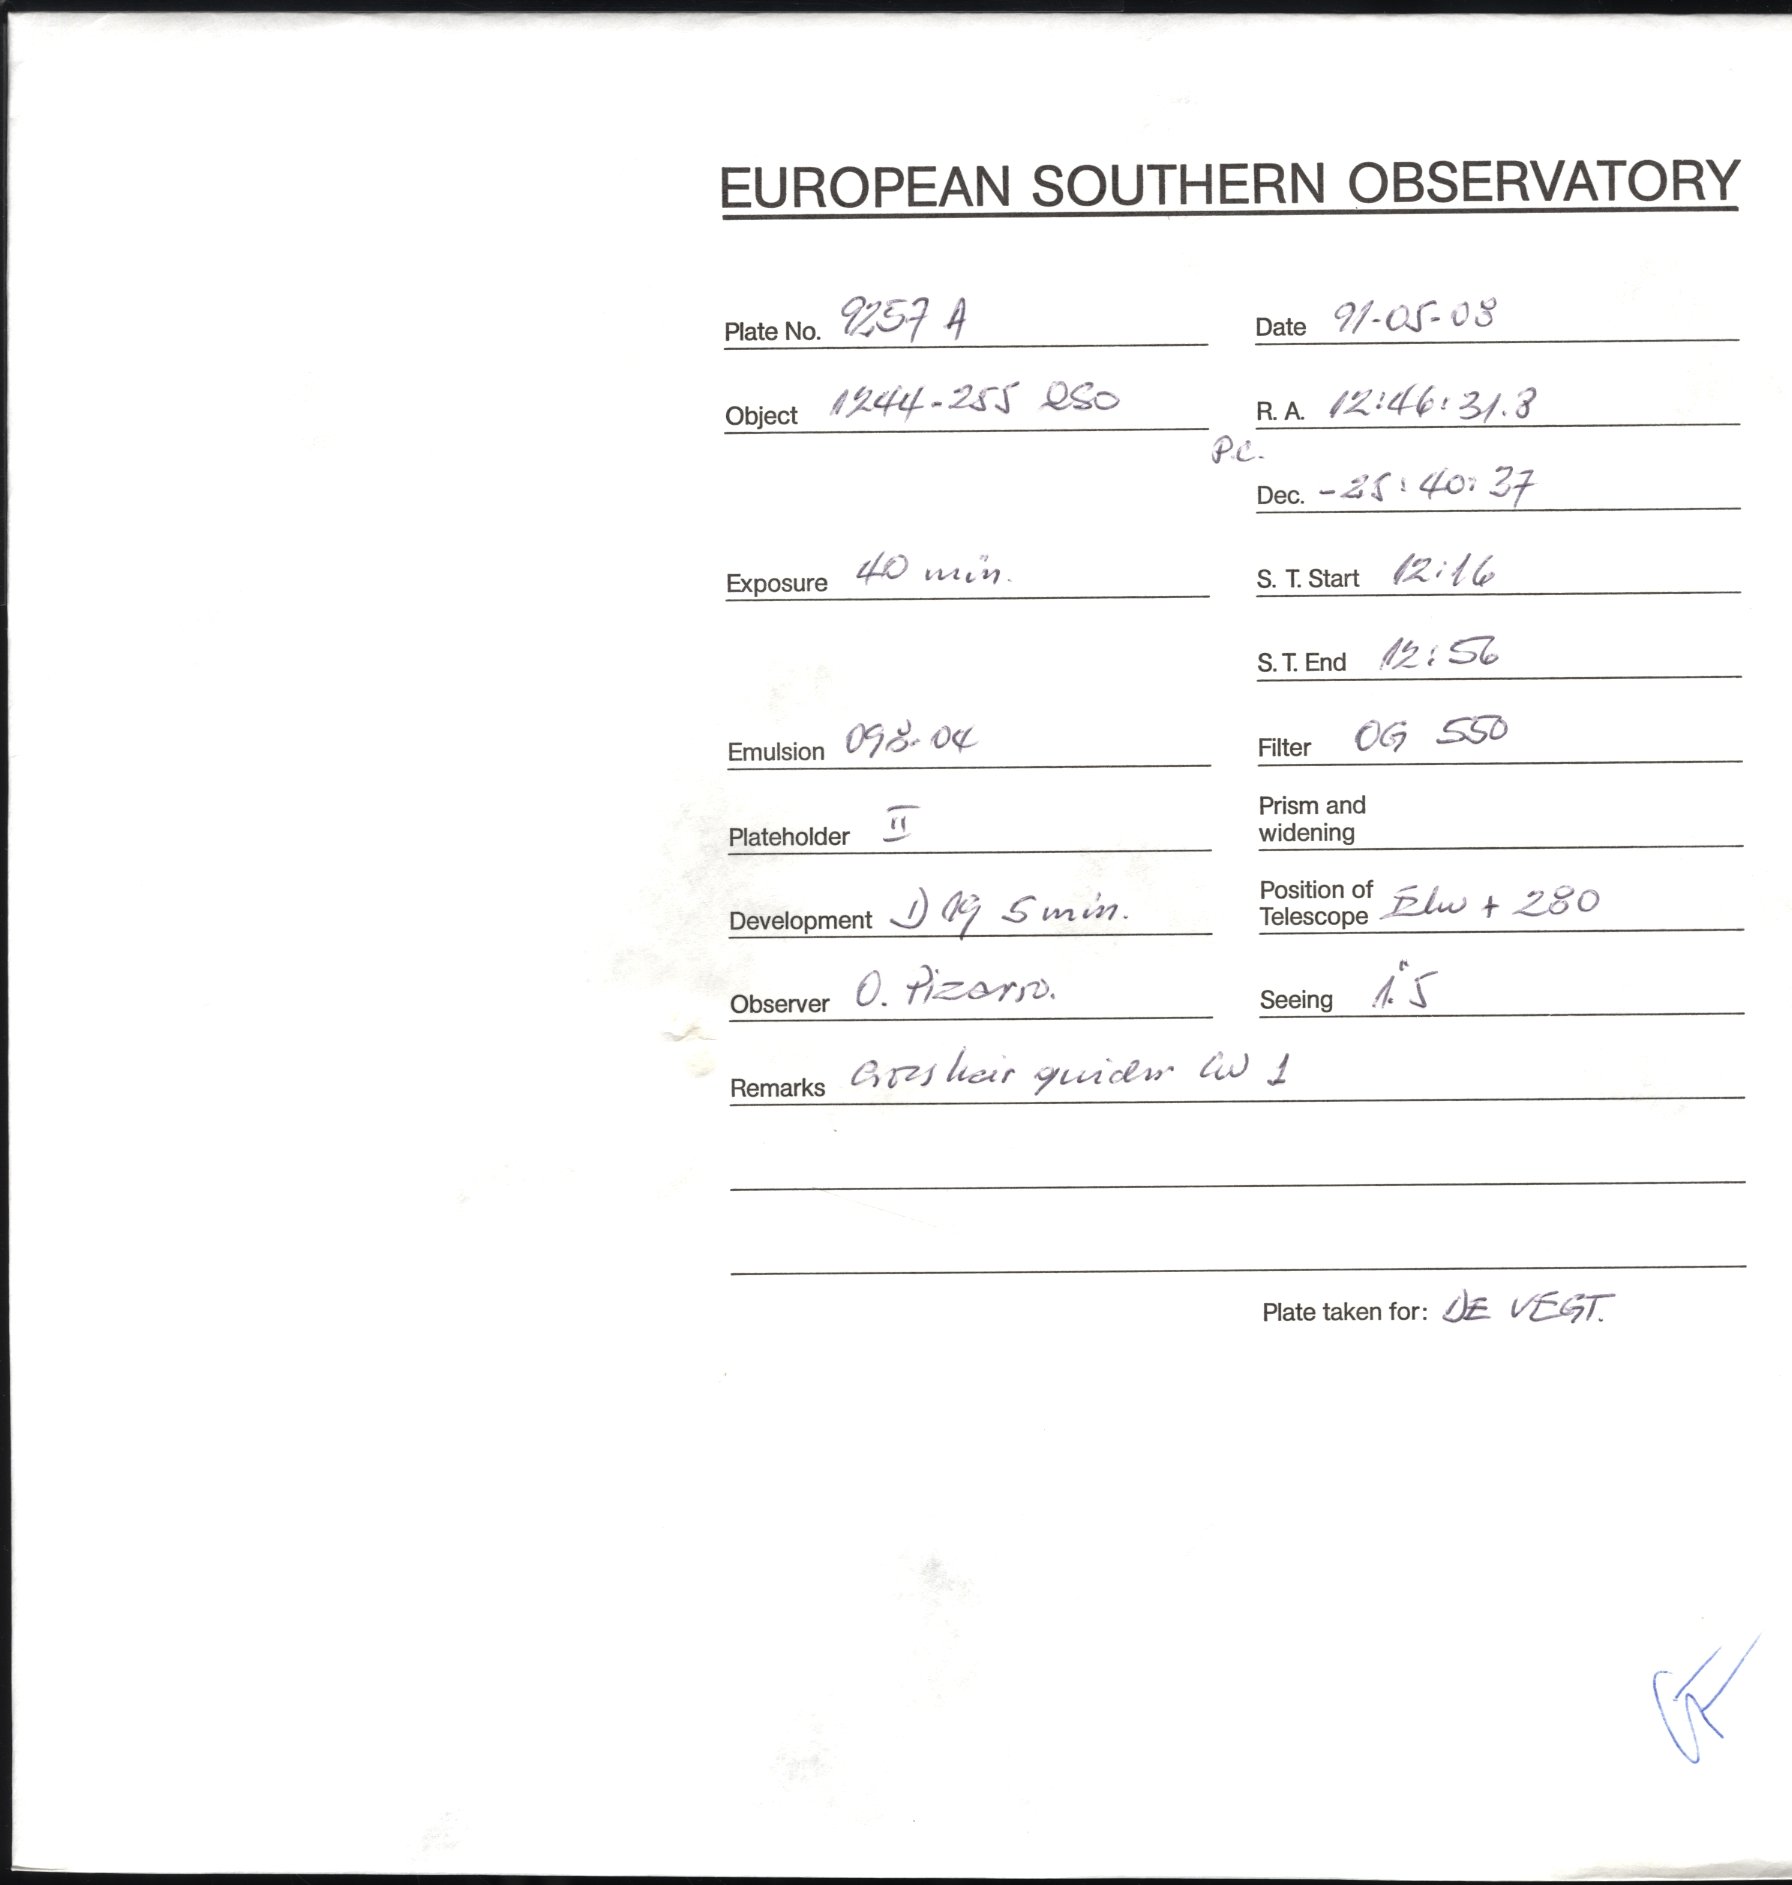 EUROPEAN SOUTHERN OBSERVATORY
Plate No. 9257 A Date 91-05-08
Object 1244-255 QSO R. A. 12:46:31.8
P.C.
Dec. -25:40:37
Exposure 40 min. S. T. Start 12:16
S. T. End 12:56
Emulsion 098-04 Filter OG 550
Plateholder II Prism and
widening
Development D 19 5 min. Position of
Telescope + 280
Observer O. Pizarro. Seeing 1".5
Remarks guider 1
Plate taken for: DE VEGT.